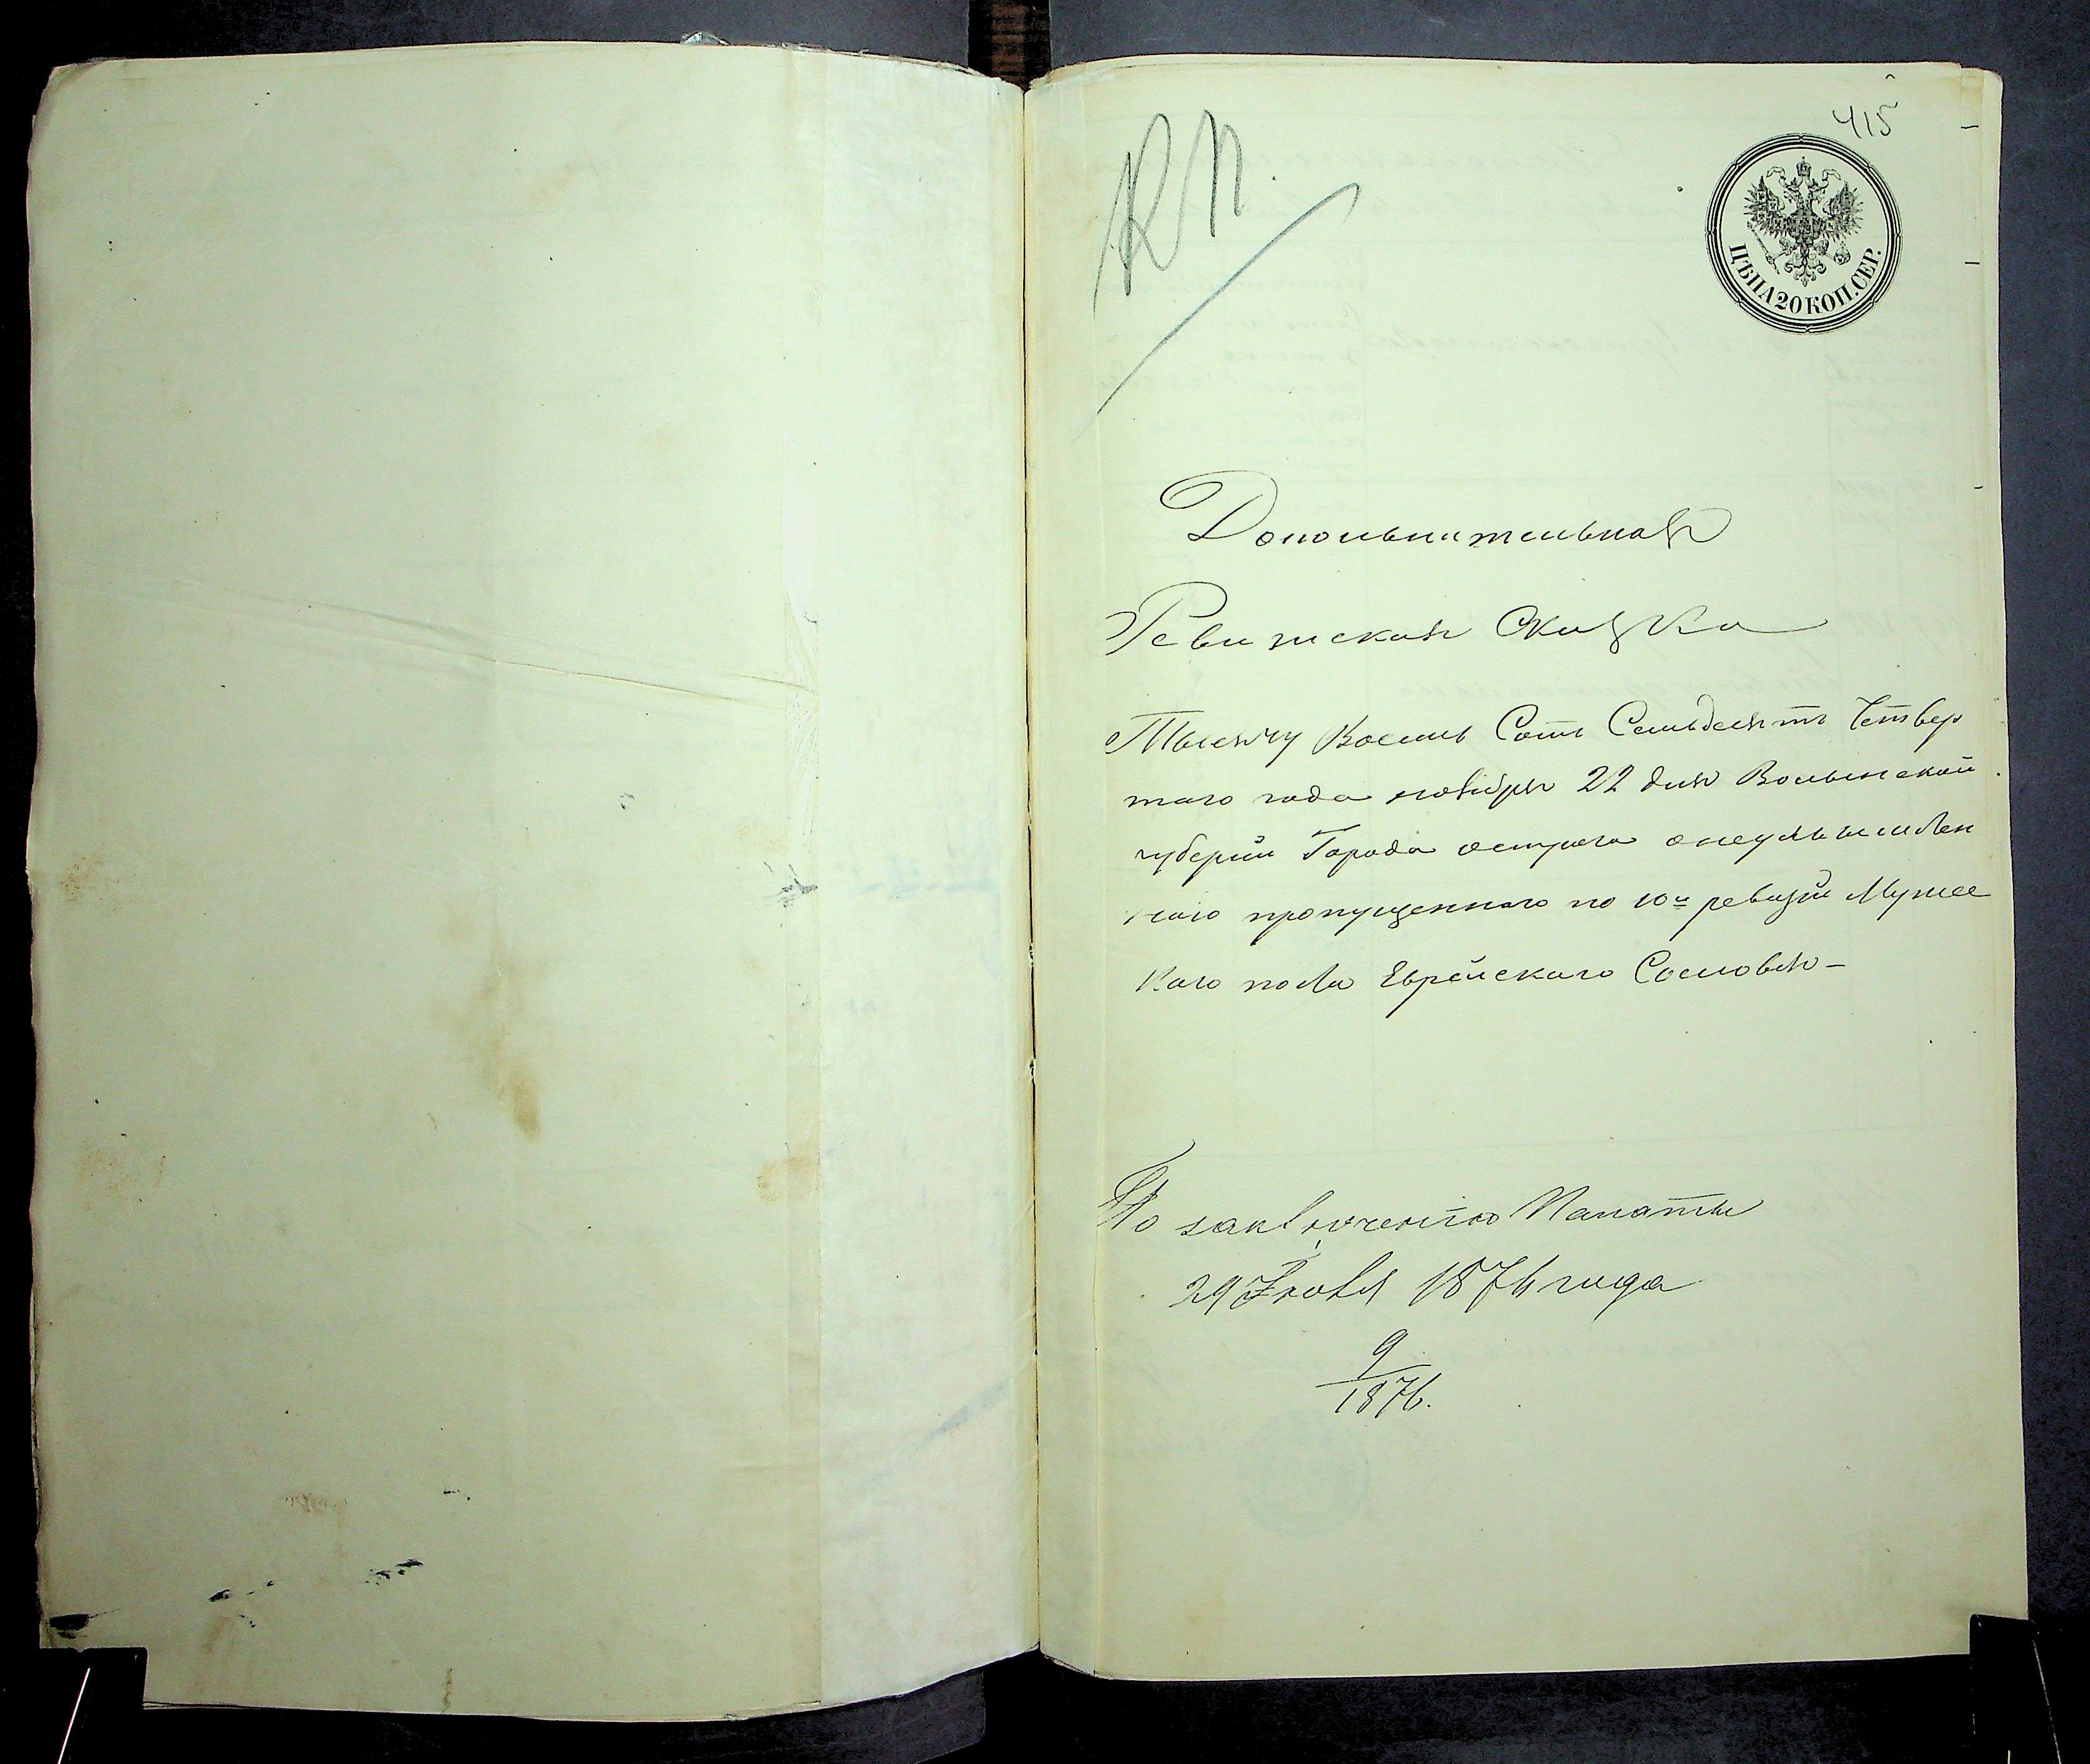 415
К П.
ЦѢНА 20 КОП. СЕР.
Дополънительная
Ревизская Сказка
Тысячу Восемь Сотъ Семьдесятъ Четвер
таго года ноября 22 дня Волынской
губерніи Города острога онеумышлен
ного пропущенного по 10й ревизіи Мужес
каго пола Еврейскаго Сословія –
По заключенію Палаты
29 Іюля 1876 года
9
1876.